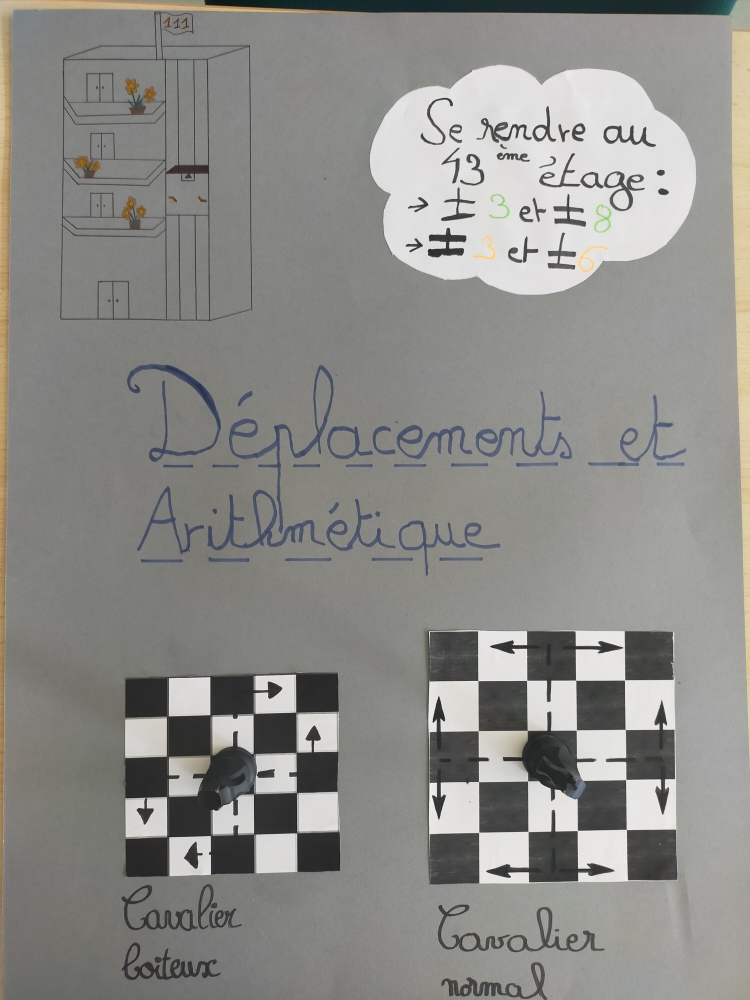 111
Se rendre au
43 ème étage :
→ ± 3 et ± 8
→ ± 3 et ± 6
Déplacements et
Arithmétique
Cavalier
boiteux
Cavalier
normal